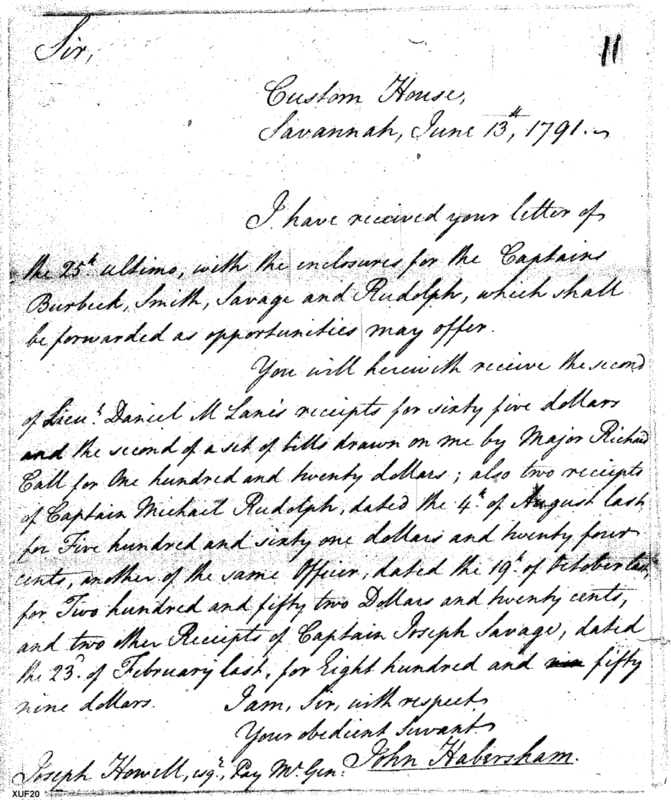 Sir,
11
Custom House,
Savannah, June 13th, 1791.
I have received your letter of
the 25th ultimo, with the enclosures for the Captains
Burbeck, Smith, Savage and Rudolph, which shall
be forwarded as opportunities may offer.
You will herewith receive the second
of Lieut. Daniel M Lane's receipts for sixty five dollars
and the second of a set of bills drawn on me by Major Richard
Call for One hundred and twenty dollars; also two receipts
of Captain Michael Rudolph, dated the 4th of August last
for Five hundred and sixty one dollars and twenty four
cents, another of the same Officer, dated the 19th of October last,
for Two hundred and fifty two Dollars and twenty cents,
and two other Receipts of Captain Joseph Savage, dated
the 23d. of February last, for Eight hundred and fifty
nine dollars. I am, Sir, with respect
Your obedient Servant
Joseph Howell, esqr., Pay Mr. Gen: John Habersham.
XUF20